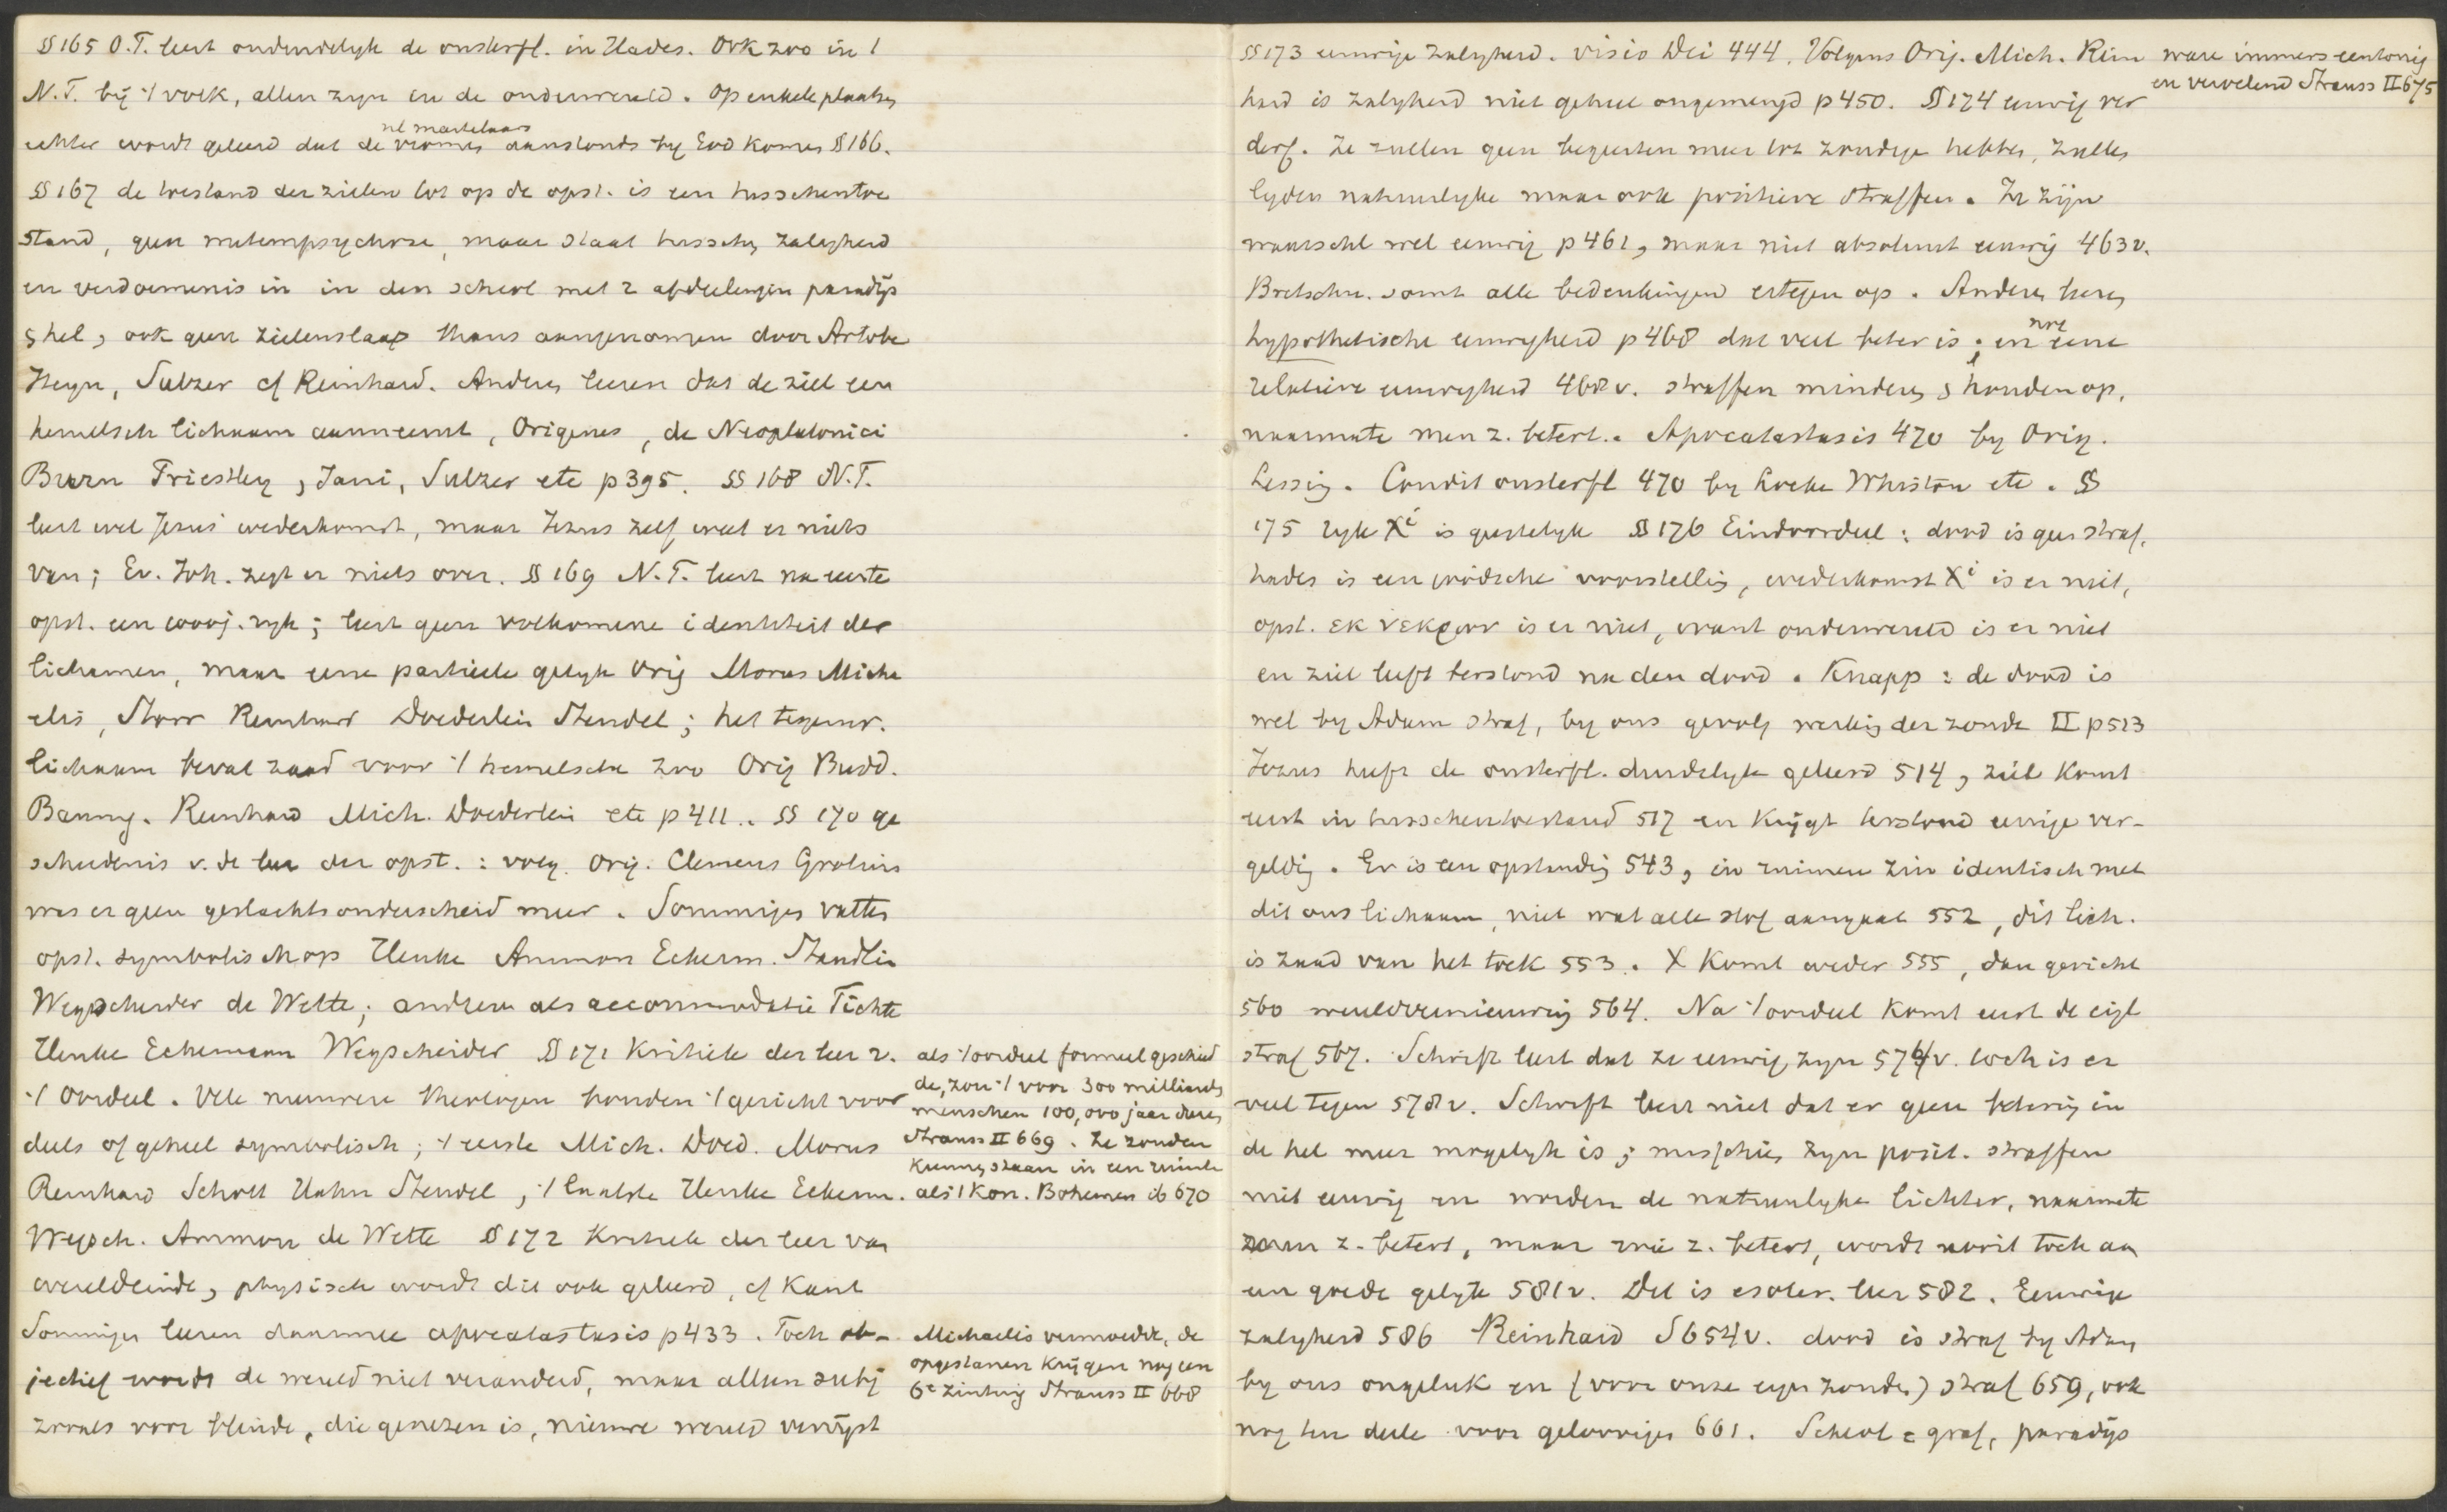 §165 O.T. leert ondendelyk de onsterfl. in Hades. Ook zoo in 't
N.T. bij 't volk, allen zyn in de onderwereld. Op enkele plaatsen
echter wordt geleerd dat de vromen nl martelaars aanstonds by God komen §166.
§167 de toestand der zielen tot op de opst. is een tusschentoe
stand, geen metempsychose, maar staat tusschen zaligheid
en verdoemenis in in den scheol met 2 afdeelingen paradijs
& hel, ook geen zielenslaap thans aangenomen door Artobe
Heyn, Sulzer cf Reinhard. Anderen leeren dat de ziel een
hemelsch lichaam aanneemt, Origenes, de Neoplatonici
Priestley, Jani, Sulzer etc p 395. §168 N.T.
leert wel Jezus' wederkomst, maar Jezus zelf weet er niets
van; Ev. Joh. zegt er niets over. §169 N.T. leert na eerste
opst. een 1000j. ryk; leert geen volkomene identiteit der
lichamen, maar eene partieele gelyk Orig Morus Micha
elis, Storr Reinhard Doederlein Steudel; het tegenw.
lichaam bevat zaad voor 't hemelsche zoo Orig Budd.
Baumg. Reinhard Mich. Doederlein etc p 411. §170 ge
schiedenis v. de leer der opst.: volg. Orig. Clemens Grotius
was er geen geslachtsonderscheid meer. Sommigen vatten
opst. symbolisch op Henke Ammon Eckerm. Staudlin
Wegscheider de Wette; anderen als accommodatie Fichte
Henke Eckermann Wegscheider §171 Kritiek der leer v.
't Oordeel. Vele nieuwere theologen houden 't gericht voor
deels of geheel symbolisch; 't eerste Mich. Doed. Morus
Reinhard Schott Hahn Steudel, 't laatste Henke Eckerm.
Wegsch. Ammon de Wette §172 Kritiek der leer van
wereldeinde, physisch wordt dit ook geleerd, cf Kant
Sommigen leeren daarmee apocatastasis p 433. Toch ob-
jectief wordt de wereld niet veranderd, maar alleen subj
zooals voor blinde, die genezen is, nieuwe wereld verrijst
als 't oordeel formeel geschied
de, zou 't voor 300 milliards
menschen 100,000 jaar duren
Strauss II 669. Ze zouden
kunnen staan in een ruimte
als 't Kon. Bohemen ib 670
Michaelis vermoedde, de
opgestanen krijgen nog een
6e zintuig Strauss II 668
§173 eeuwige zaligheid. visio Dei 444. Volgens Orig. Mich. Rein
hard is zaligheid niet geheel ongemengd p 450. §174 eeuwig ver
derf. Ze zullen geen begeerten meer tot zondige hebben, zullen
lyden natuurlyke maar ook positieve straffen. Ze zijn
waarschl wel eeuwig p 461, maar niet absoluut eeuwig 463v.
Bretschn. somt alle bedenkingen ertegen op. Anderen leeren
hypothetische eeuwigheid p 468 dat veel beter is; en nog eene
relatieve eeuwigheid 468v. straffen minderen & houden op,
naarmate men z. betert. Apocatastasis 470 by Orig.
Lessing. Condit onsterfl 470 by Locke Whiston etc. §
175 ryk Xi is geestelyk §176 Eindoordeel: dood is geen straf,
hades is een joodsche voorstelling, wederkomst Xi is er niet,
opst. εκ νεκρων is er niet, want onderwereld is er niet
en ziel leeft terstond na den dood. Knapp: de dood is
wel by Adam straf, by ons gevolg werking der zonde II p 513
Jezus heeft de onsterfl. duidelyk geleerd 514, ziel komt
eerst in tusschentoestand 517 en krijgt terstond eenige ver-
gelding. Er is een opstanding 543, in ruimen zin identisch met
dit ons lichaam, niet wat alle stof aangaat 552, dit lich.
is zaad van het toek 553. X komt weder 555, dan gericht
560 wereldvernieuwing 564. Na 't oordeel komt eerst de eigl
straf 567. Schrift leert dat ze eeuwig zyn 574v. toch is er
veel tegen 578v. Schrift leert niet dat er geen betering in
de hel meer mogelyk is; misschien zyn posit. straffen
niet eeuwig en worden de natuurlyke lichter, naarmate
men z. betert, maar wie z. betert, wordt nooit toch aan
een goede gelyk 581v. Dit is esoter. leer 582. Eeuwige
zaligheid 586 Reinhard S 654v. dood is straf by Adam
by ons ongeluk en (voor onze eigen zonden) straf 659, ook
nog ten deele voor geloovigen 661. Scheol = graf, paradijs
ware immers eentonig
en vervelend Strauss II 675